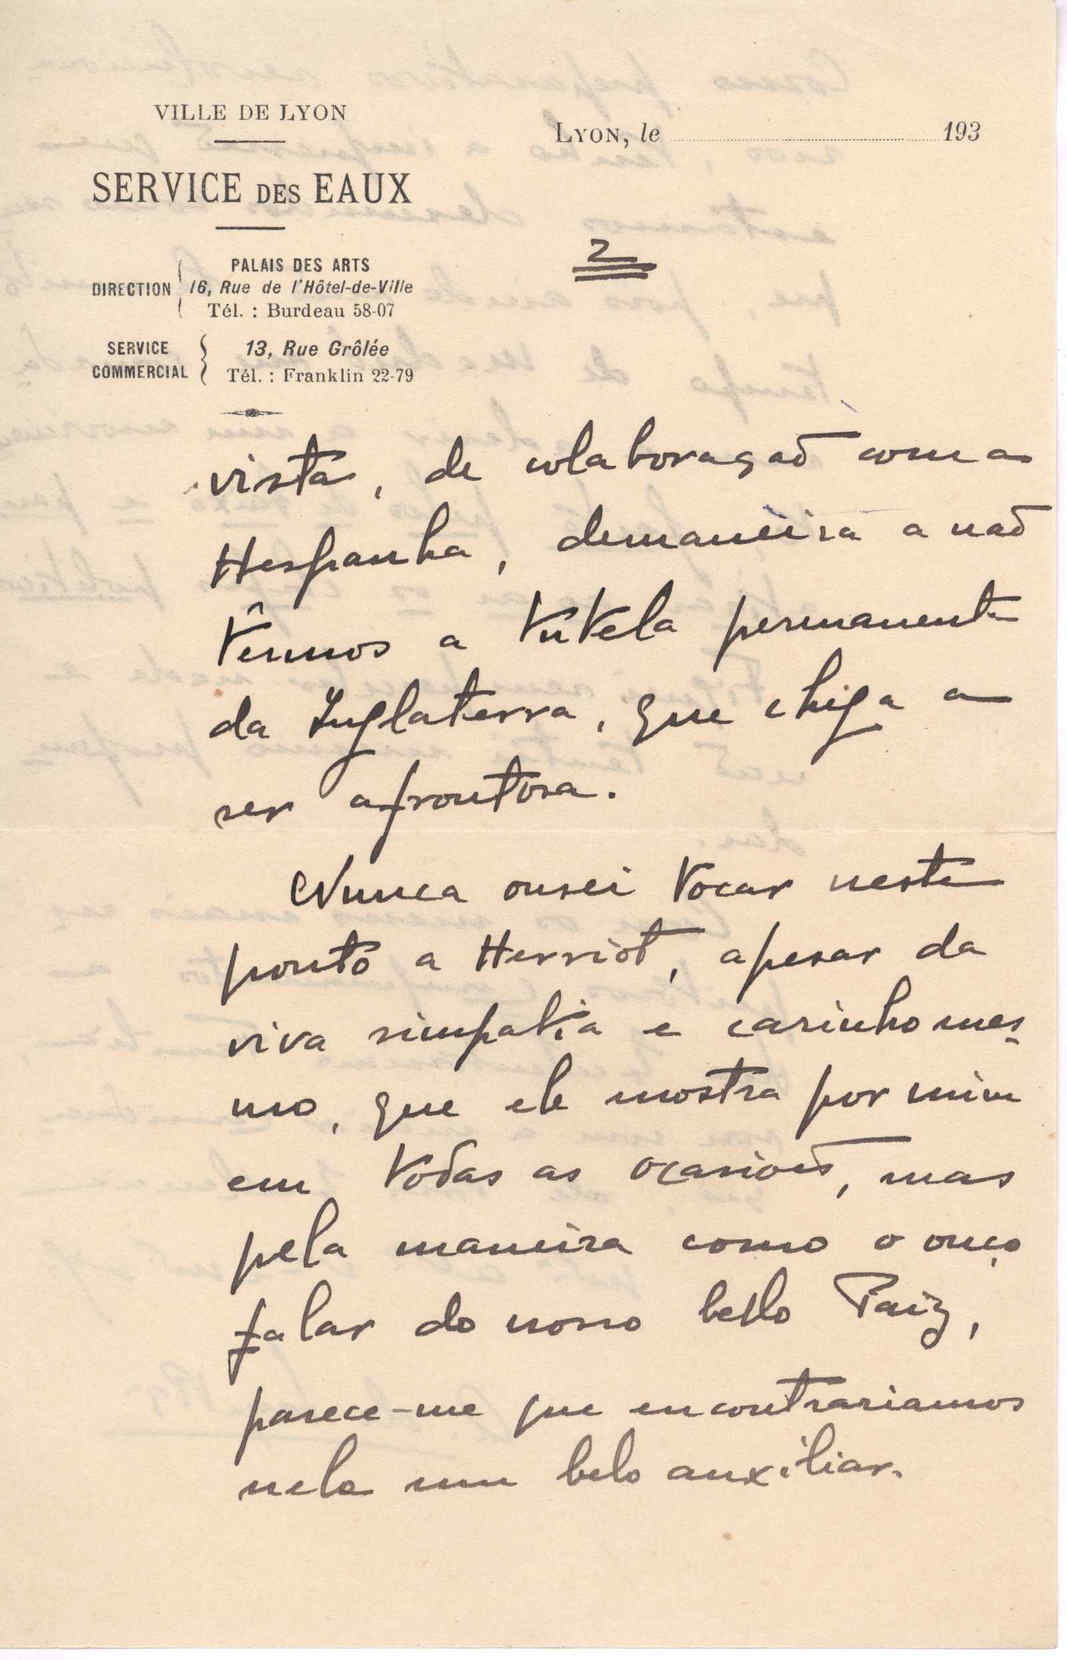 VILLE DE LYON
SERVICE DES EAUX
DIRECTION
PALAIS DES ARTS
16, Rue de l'Hôtel-de-Ville
Tél. : Burdeau 58-07
SERVICE
COMMERCIAL
13, Rue Grôlée
Tél. : Franklin 22-79
LYON, le 193
2
vista, de colaboraçaõ com a
Hespanha, demaneira a naõ
têrmos a tutela permanente
da Inglaterra, que chega a
ser afrontosa.
Nunca ousei tocar neste
ponto a Herriot, apesar da
viva simpatia e carinho mes-
mo, que ele mostra por mim
em todas as ocasioẽs, mas
pela maneira como o ouço
falar do nosso bello Paiz,
parece-me que encontrariamos
nele um belo auxiliar.